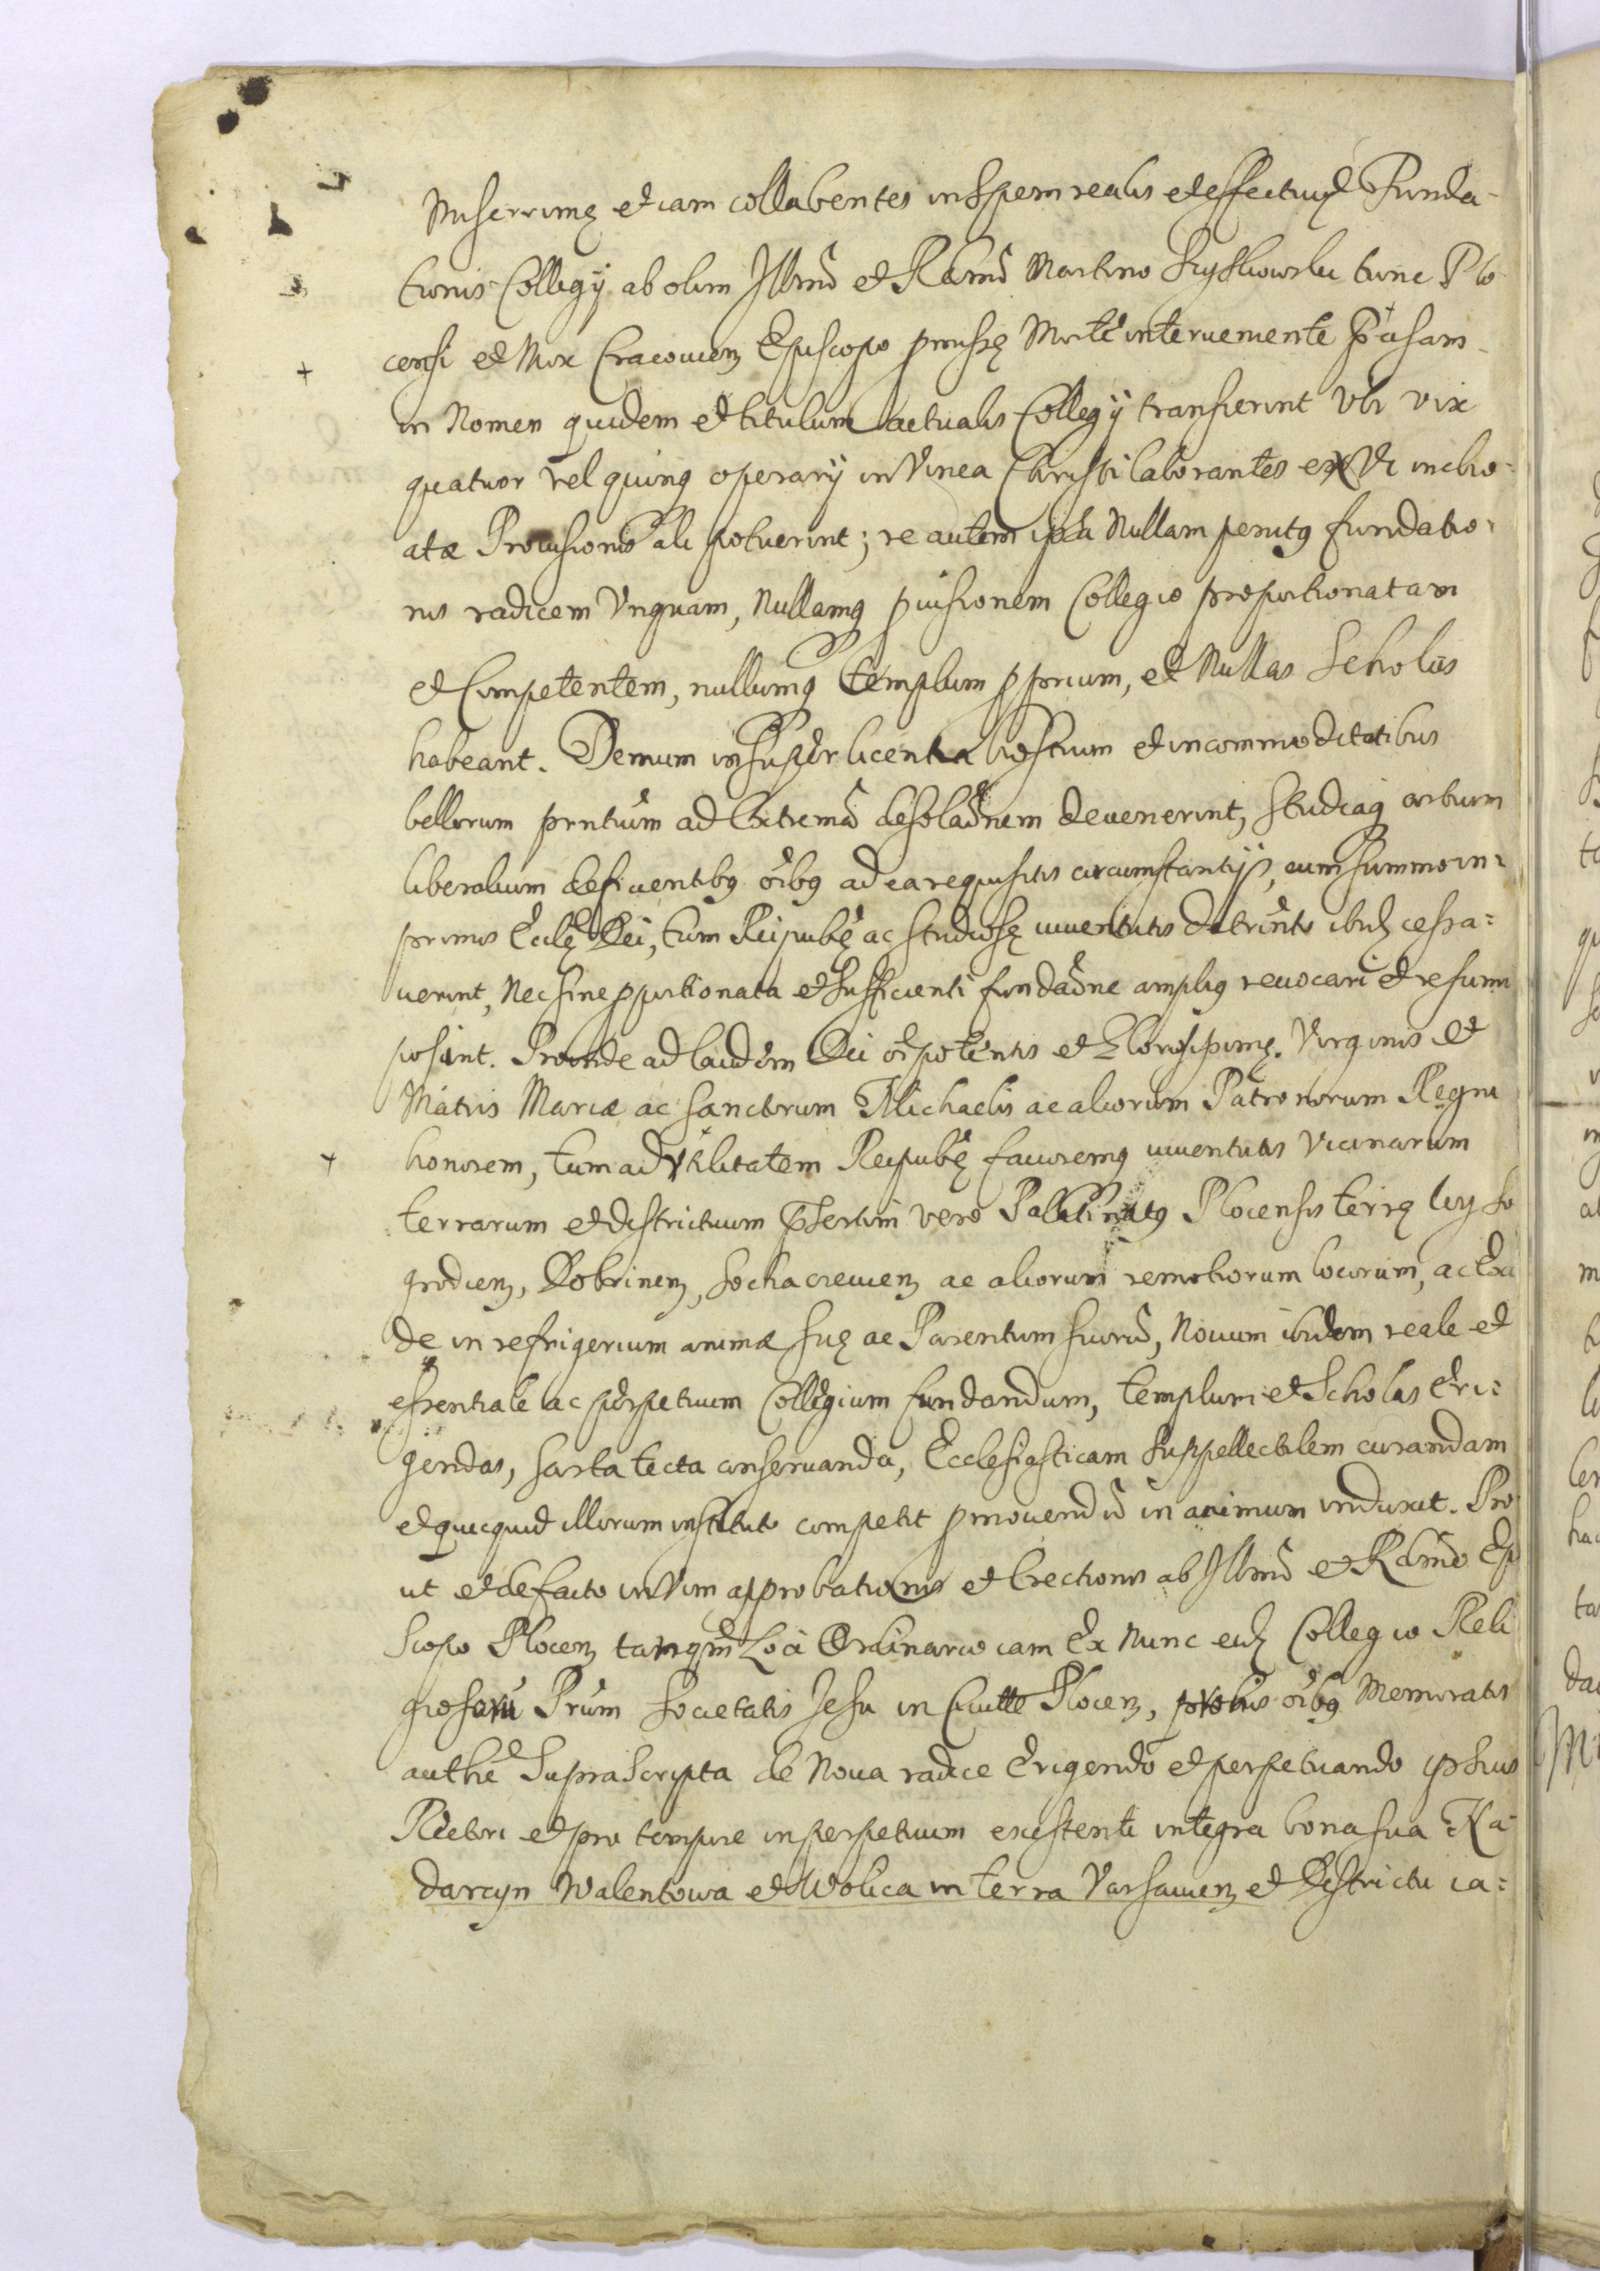 Miserrimę et iam collabentes in Spem realis et effectivę Funda-
tionis Collegÿ ab olim Illmō et Rdmō Martino Szyszkowski tunc Plo
censi et Mox Cracovien Episcopo promissę Morte interveniente
in Nomen quidem et titulum actualis Collegÿ transierint Vbi vix
quatuor vel quinq operarÿ in Vinea Christi laborantes ex Vi incho=
atæ Provisionis ali potuerint; re autem ipsa Nullam penitq fundatio=
nis radicem Vnquam, Nullamq pvisionem Collegio proportionatam
et Competentem, nullumq templum pprium, et Nullas Scholas
habeant. Demum insuper licentia hostium et incommoditatibus
bellorum prntium ad Extremā desolaōnem devenerint, Studiaq artium
liberalium deficientibq oībq ad ea requisitis circumstantÿs, cum summo in=
primis Ecclę Dei, tum Reipubę ac studiosę iuventutis detrimto ibid cessa=
verint, Nec sine pportionata et sufficienti fundaōne ampliq revocari et resumi
possint. Proinde ad laudem Dei oīpotentis et Gloriosissimę Virginis et
Matris Mariæ ac Sanctorum Michaelis ac aliorum Patronorum Regni
honorem, tum ad Vtilitatem Reipubę favoremq iuventutis Vicinarum
terrarum et districtuum pSertim vero Palatinatq Plocensis terrę Wyszo
grodien, Dobrinen, Sochaczevien ac aliorum remotiorum locorum, ac Exin
de in refrigerium animæ suę ac Parentum suorū, Novum ibidem reale et
essentiale ac perpetuum Collegium fundandum, templum et Scholas Eri=
gendas, sarta tecta conservanda, Ecclesiasticam Suppellectilem curandam
et quicquid illorum instituto competit pmovendū in animum induxit. Pro
ut et de facto in Vim approbationis et Erectionis ab Illmō et Rdmō Epi
scopo Plocen tanqm Loci Ordinario iam Ex Nunc eid Collegio Reli
giosorū Prūm Societatis Jesu in Civitte Plocen, oībq Memoratis
authē Suprascripta de Nova radice Erigendo et perpetuando ipsius
Rectori et pro tempore in perpetuum existenti integra bona sua Na
darcyn Walentowa et Wolica in terra Varsavien et Districtu ea=